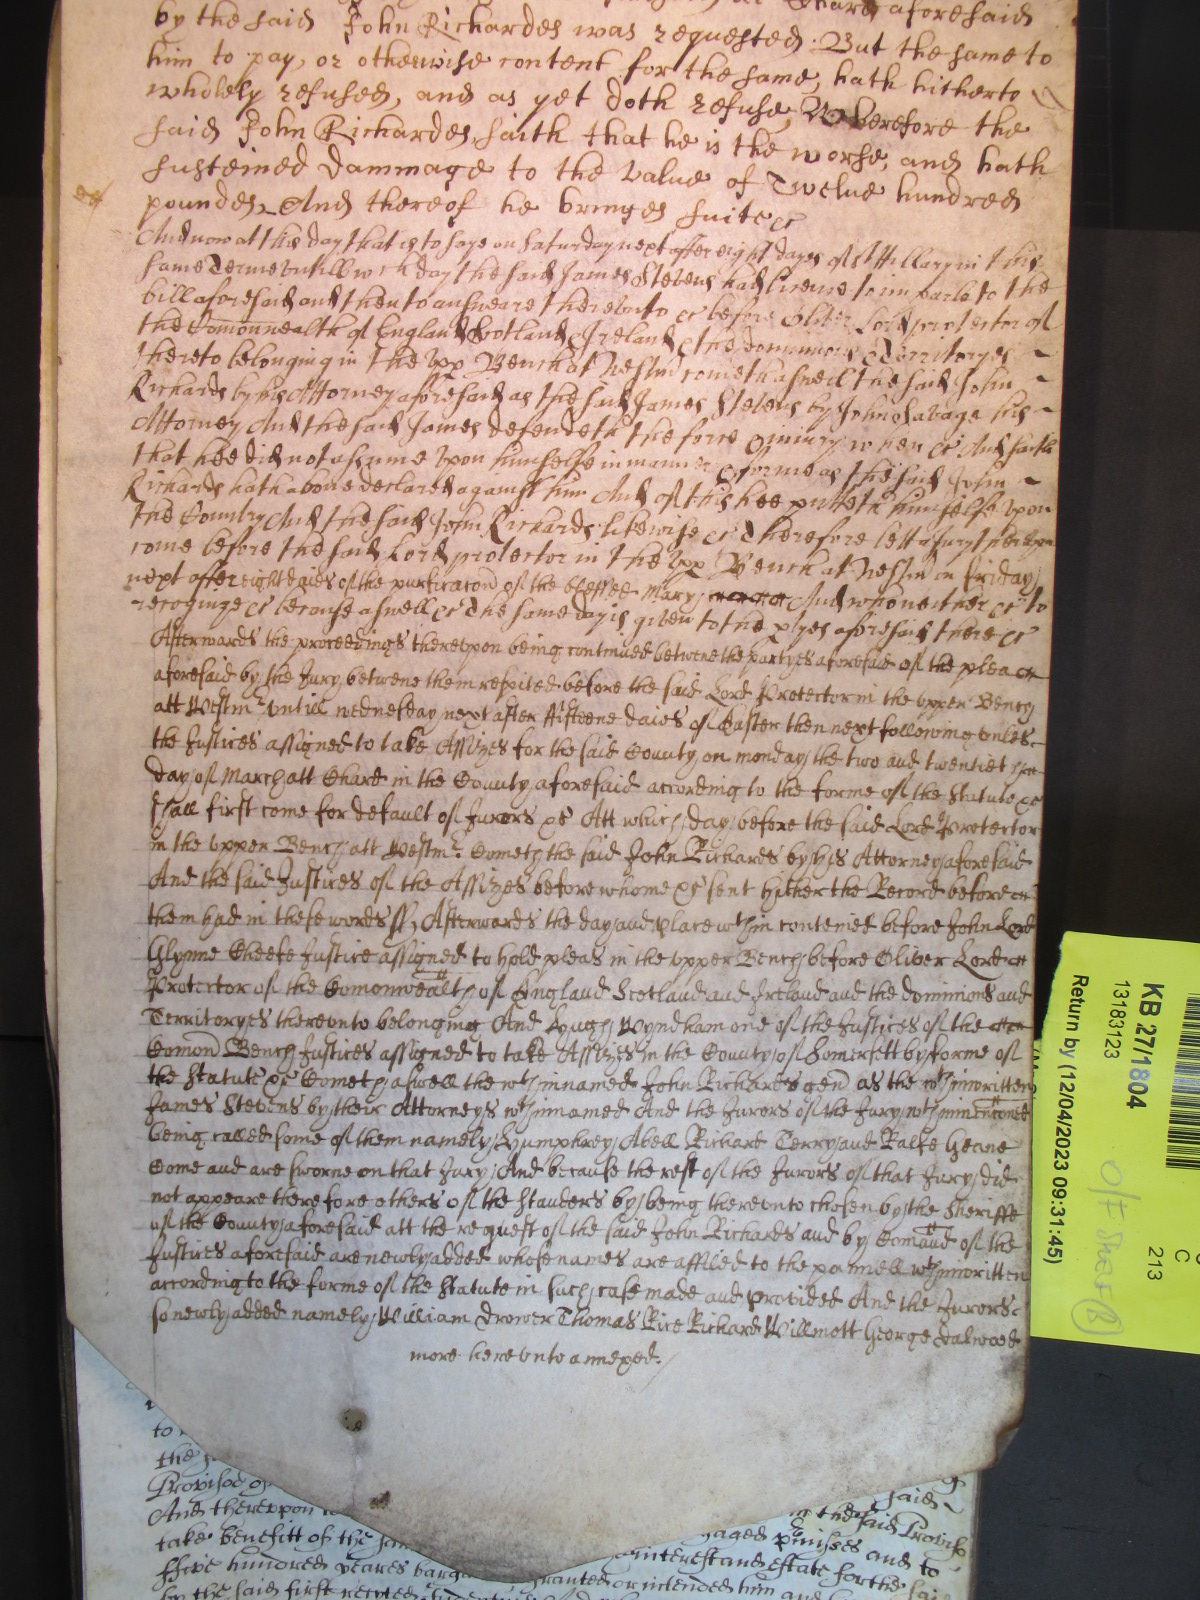 at Chard aforesaid
by the said John Richardes was requested. But the same to
him to pay, or otherwise content for the same, hath hitherto
wholely refused, and as yet doth refuse, Wherefore the
said John Richardes, saith that he is the worse, and hath
susteined dammage to the value of Twelue hundred
poundes, And thereof he bringes suite &c
And now at this day that is to saye on Saturday next after eight dayes of St Hillary in this
same Terme untill wch day the said James Stevens had licence to imparle to the
bill aforesaid and then to answeare thereunto &c before Oliver Lord protector of
the Comonwealth of England Scotland & Ireland & the dominions & Territoryes
thereto belonging in the Upp Bench at Westm cometh aswell the said John
Richards by his Attorney aforesaid as the said James Stevens by John Savage his
Attorney And the said James defendeth the force & iniury when &c And saith
that hee did not assume upon himselfe in manner & forme as the said John
Richards hath above declared against him And of this hee putteth himselfe upon
the Country And the said John Richards likewise &c Therefore lett a Jury thereupon
come before the said Lord protector in the Upp Bench at Westm on Friday
next after eight daies of the purificacon of the blessed Mary And who neither &c to
recognize &c because aswell &c The same day is given to the ptyes aforesaid there &c
Afterwards the proceedings thereupon being continued betwene the partyes aforesaid of the plea
aforesaid by the Jury betwene them respited before the said Lord Protector in the upper Bench
att Westmr untill wednesday next after fifteene daies of Easter then next following unles
the Justices assigned to take Assizes for the said County on monday the two and twentieth
day of March att Chard in the County aforesaid according to the forme of the Statute &c
shall first come for default of Jurors &c Att which day before the said Lord Protector
in the upper Bench att Westmr Cometh the said John Richards by his Attorney aforesaid
And the said Justices of the Assizes before whome &c sent hither the Record before
them had in these words ss, Afterwards the day and place wthin conteined before John Lord
Glynne Cheefe Justice assigned to hold pleas in the upper Bench before Oliver Lord
Protector of the Comonwealth of England Scotland and Ireland and the dominions and
Territoryes thereunto belonging And Hugh Wyndham one of the Justices of the
Comon Bench Justices assigned to take Assizes in the County of Somersett by forme of
the Statute &c Cometh aswell the wthinnamed John Richards gen as the wthinwritten
James Stevens by their Attorneys wthinnamed And the Jurors of the Jury wthin mencioned
being called some of them namely Humphrey Abell Richard Terry and Ralfe Geane
Come and are sworne on that Jury And because the rest of the Jurors of that Jury did
not appeare therefore others of the Standers by being thereunto chosen by the Sheriffe
of the County aforesaid att the request of the said John Richards and by Comaund of the
Justices aforesaid are newly added whose names are affiled to the pannell wthinwritten
according to the forme of the Statute in such case made and provided And the Jurors
so newly added namely William Drower Thomas Rice Richard Willmott George Dalwood
more hereunto annexed.
KB 27/1804
13183123
Return by (12/04/2023 09:31:45)
C
213
to
Provisoe
said
And thereupon
in the said Proviso
take benefitt of the
premisses and to
ffive hundred yeares
interest and estate for the said
by the said first recited
him and